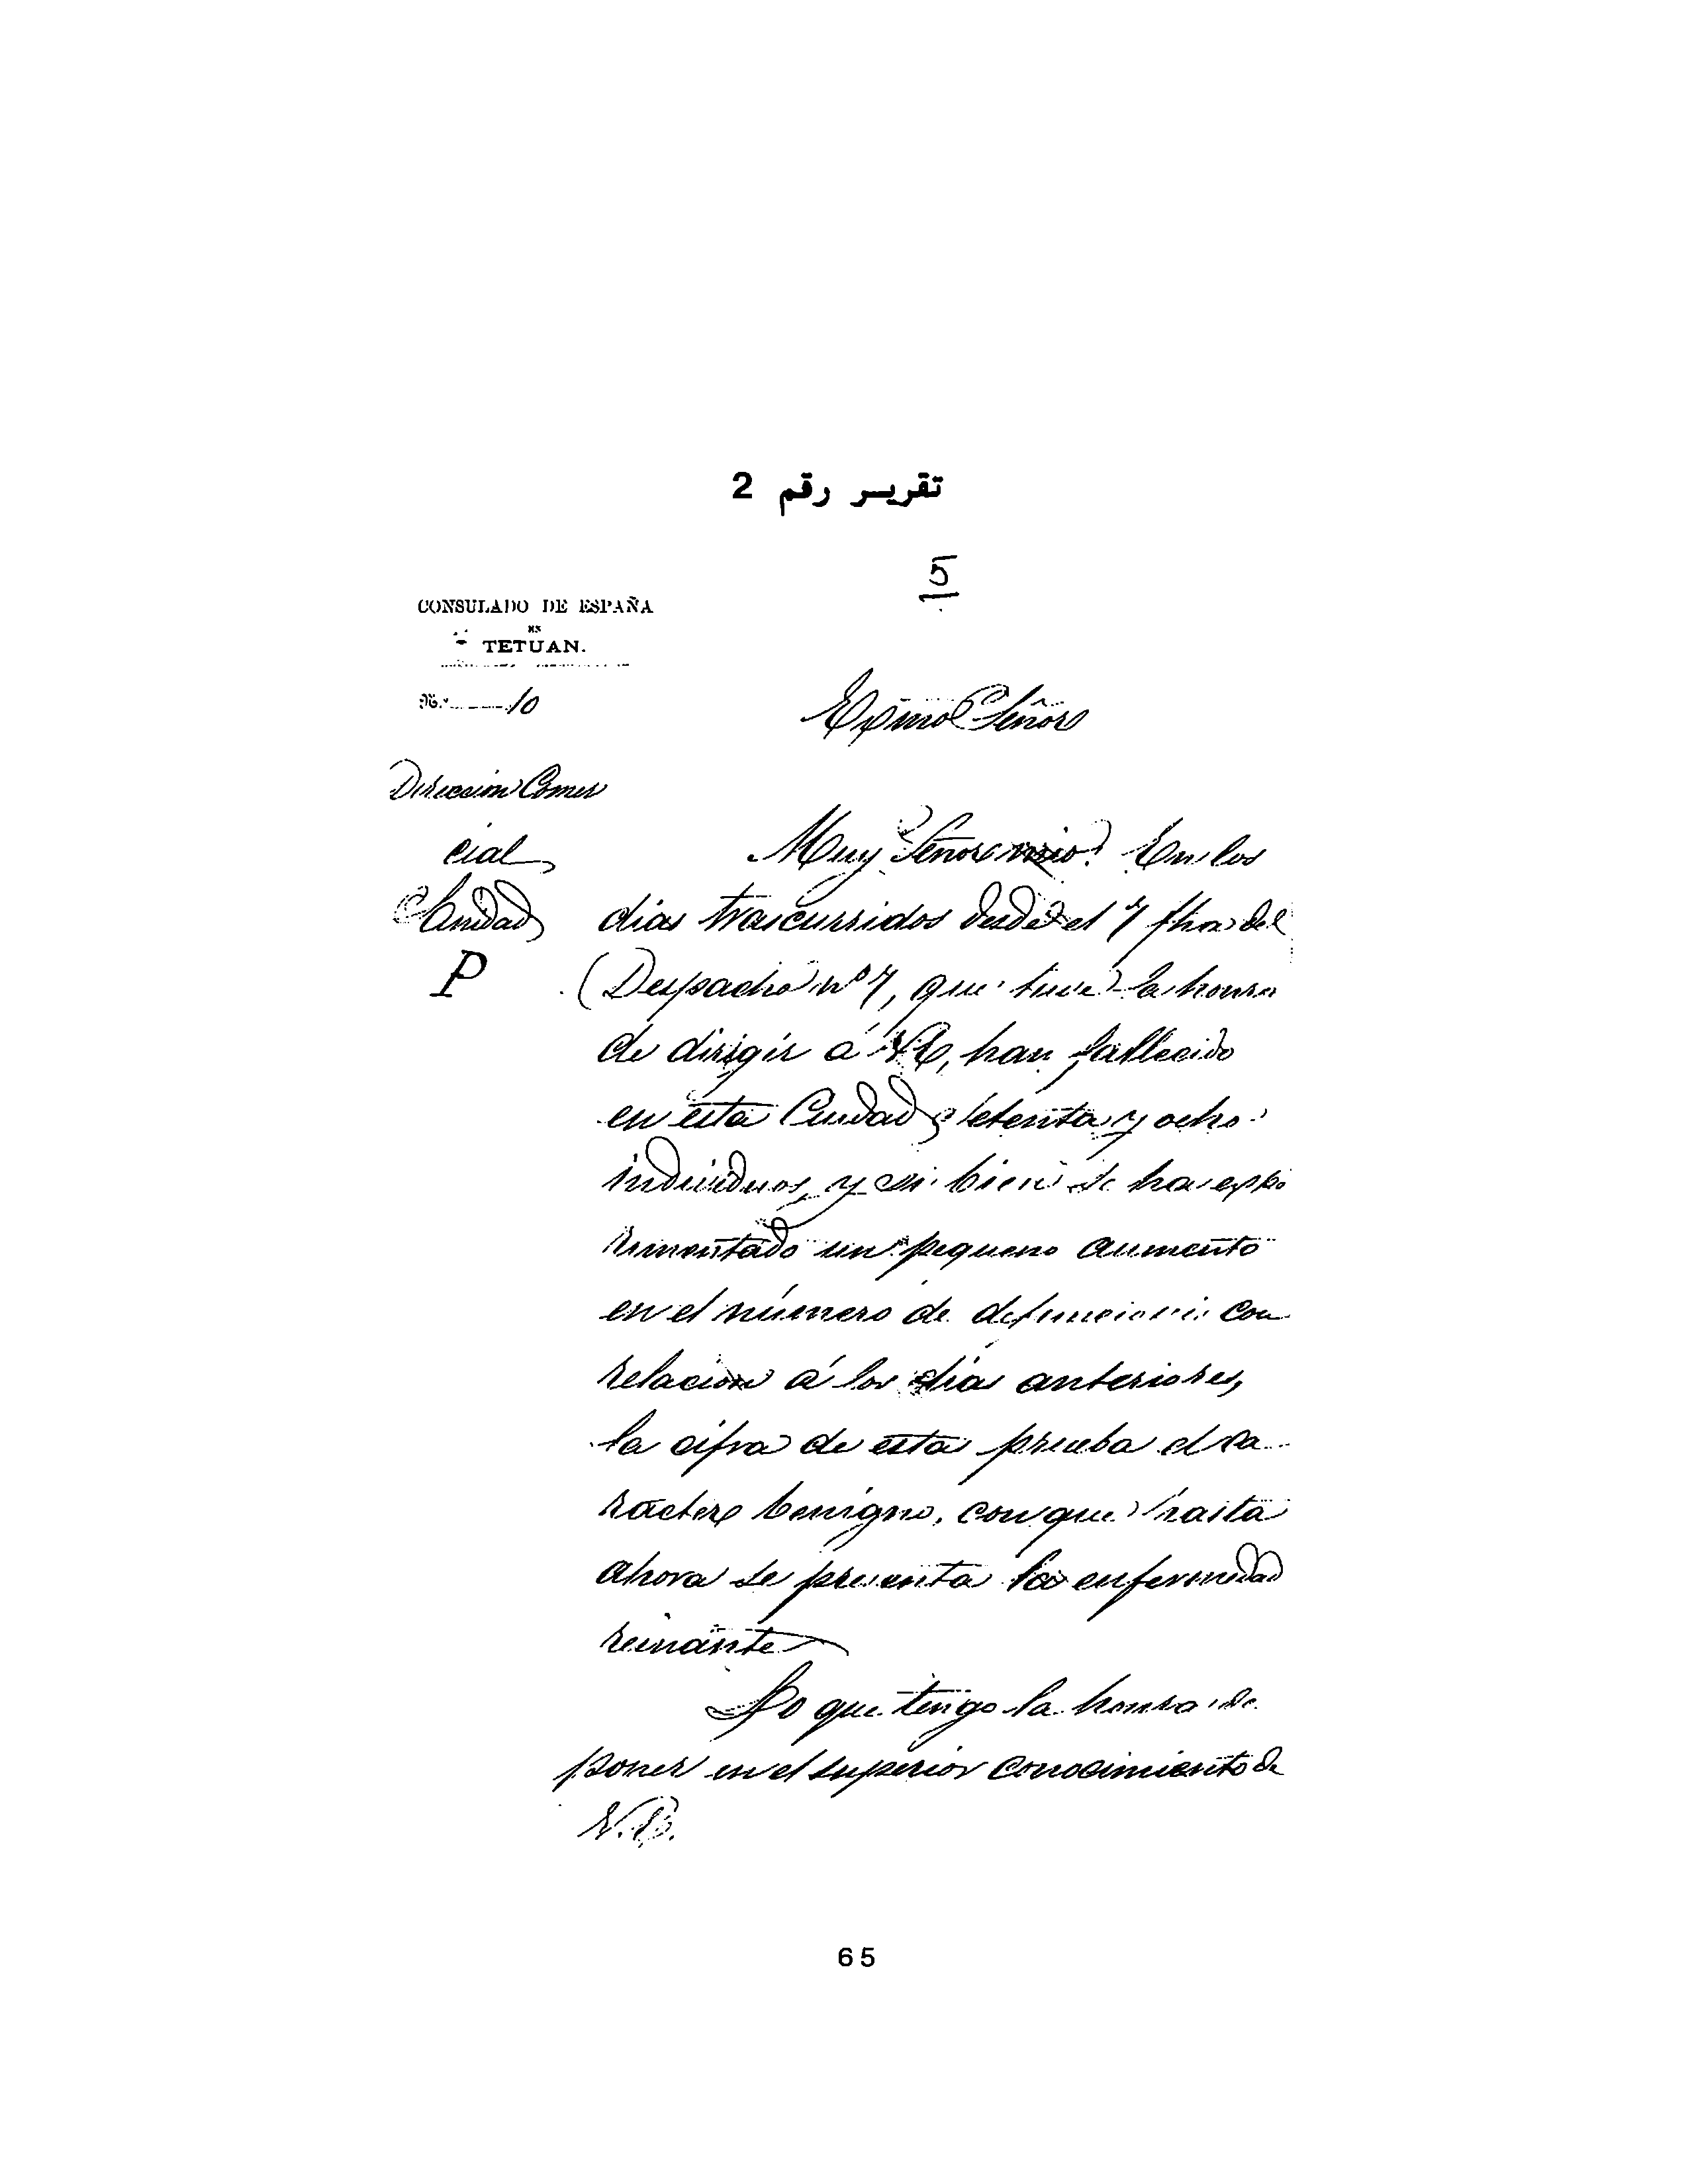 تقرير رقم 2
5
CONSULADO DE ESPAÑA
EN
TETUAN.
N.º 10
Exmo Señor
Direccion Comer
cial
Sanidad
P
Muy Señor mio: En los
dias trascurridos desde el 7 fha del
Despacho nº 7, que tuve la honra
de dirigir á V.E., han fallecido
en esta Ciudad setenta y ocho
individuos, y si bien se ha expe
rimentado un pequeno aumento
en el número de defunciones con
relacion á los dias anteriores,
la cifra de esta prueba el ca
racter benigno, con que hasta
ahora se presenta la enfermedad
reinante
Lo que tengo la honra de
poner en el superior conocimiento de
V.E.
65